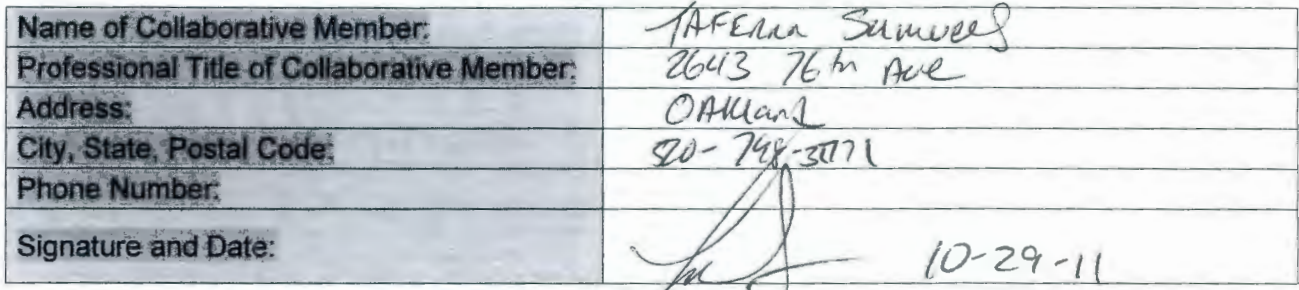 Name of Collaborative Member: TAFERRA Samuels
Professional Title of Collaborative Member: 2643 76th Ave
Address: OAKland
City, State, Postal Code:
Phone Number:
Signature and Date: 10-29-11